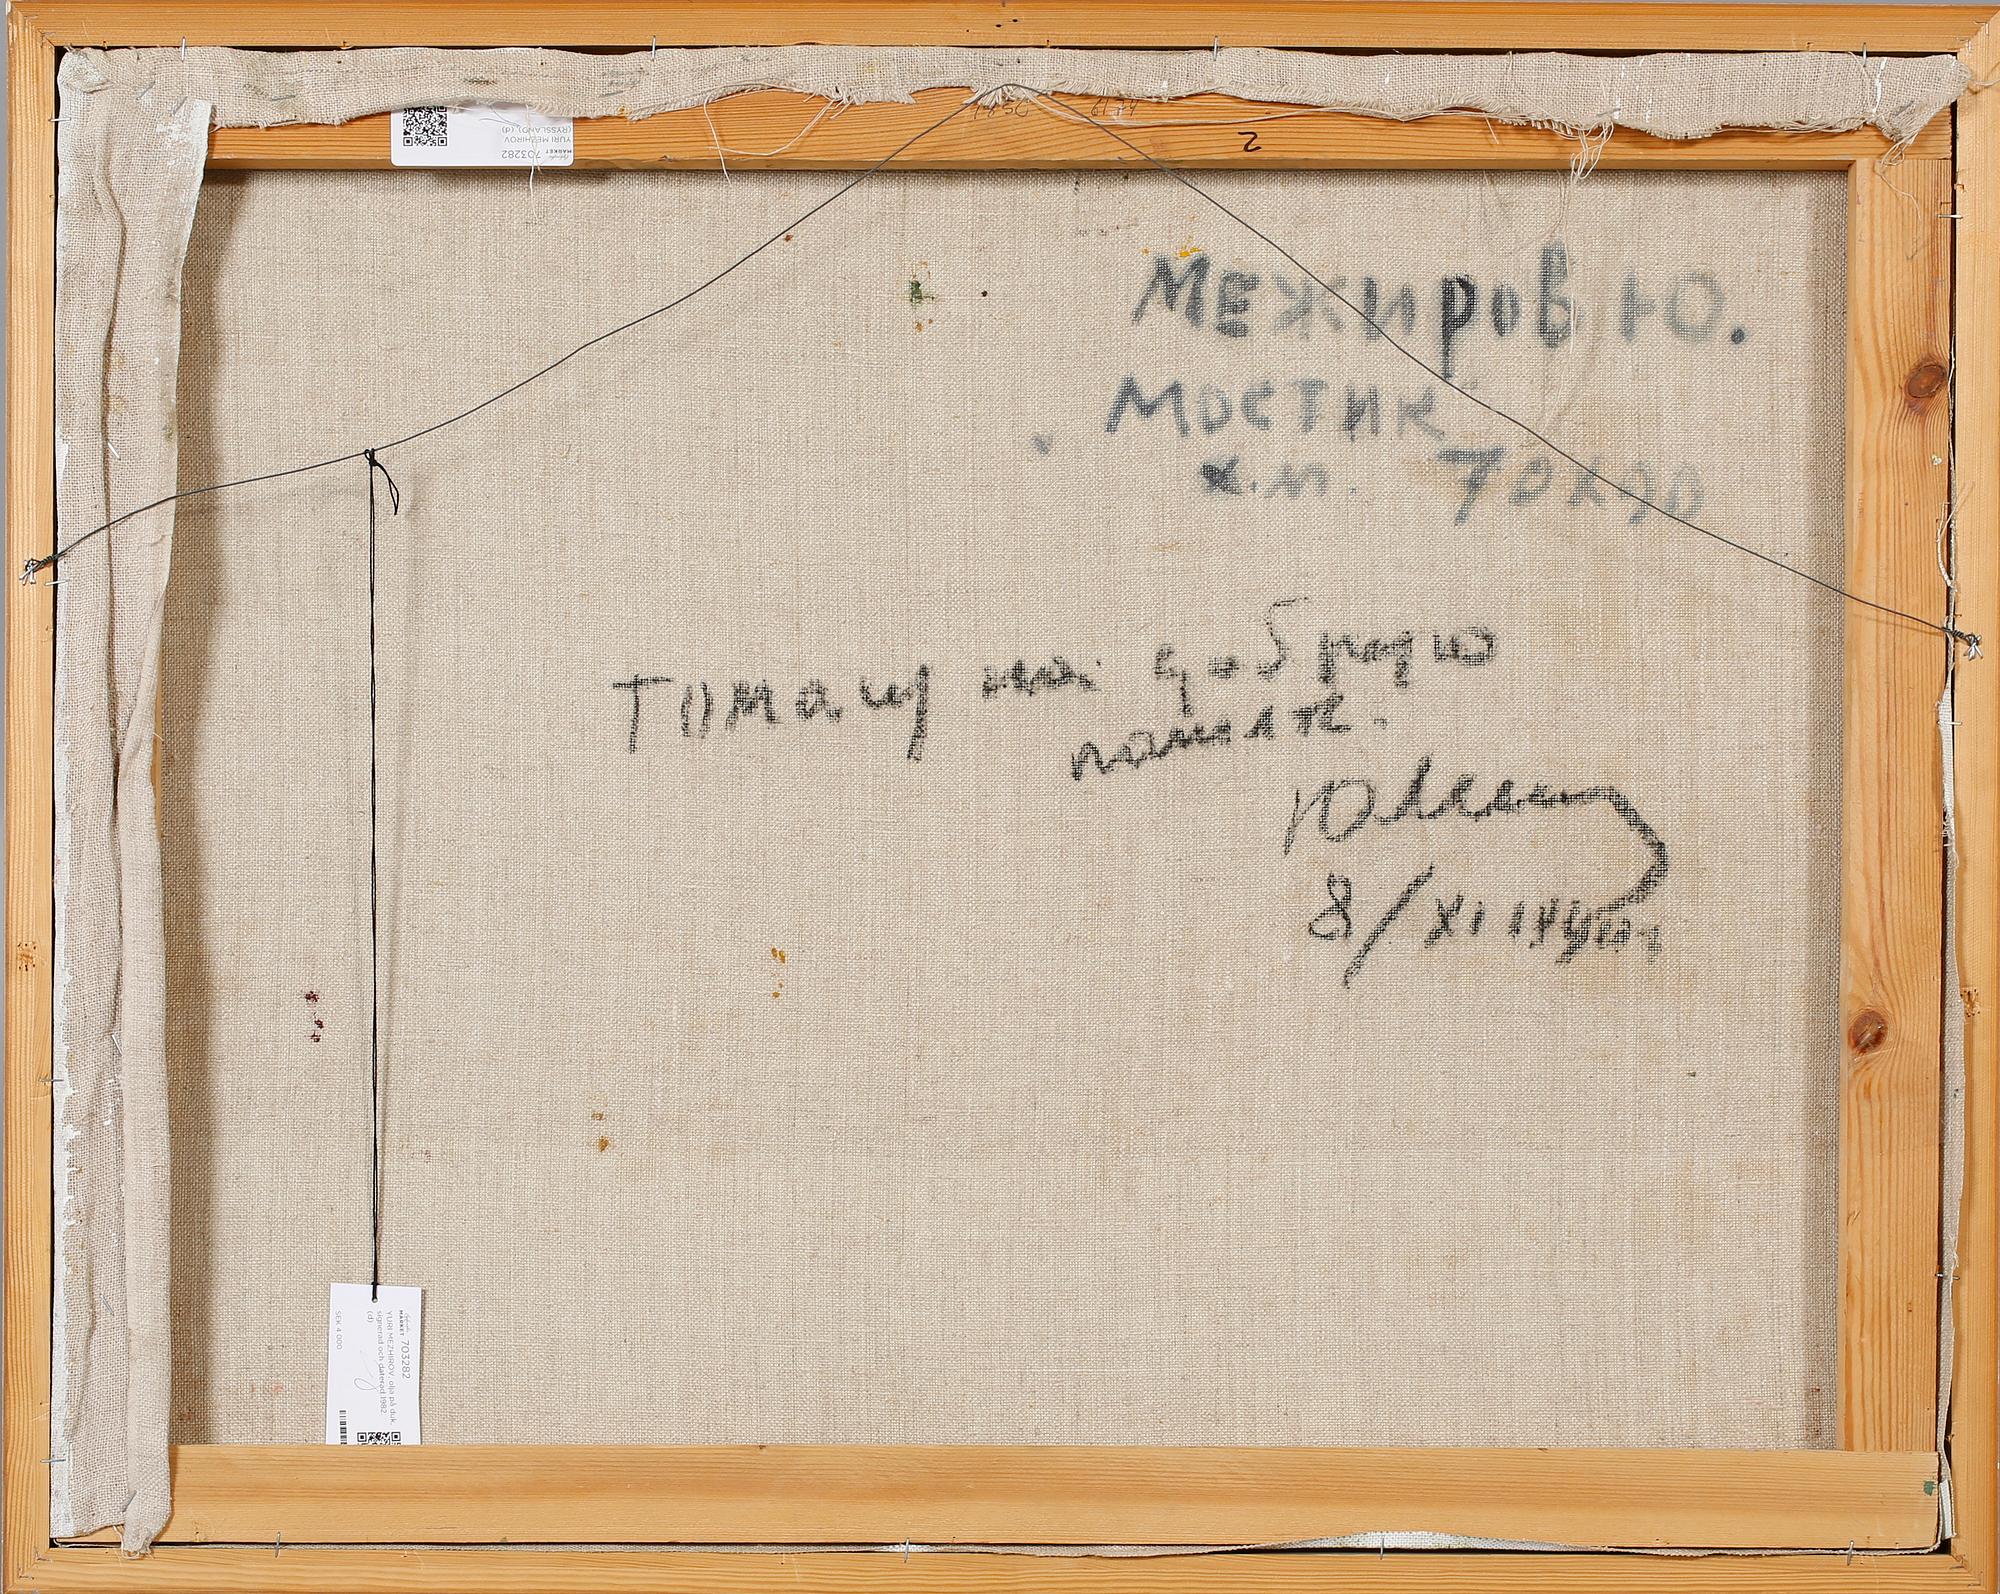 703282
MARKET
YURI MEZHIROV,
(RYSSLAND), (d)
2
МЕЖИРОВ Ю.
МОСТИК
х.м. 70х90
Томашу на добрую
память.
8/XI
MARKET 703282
YURI MEZHIROV, olja på duk,
signerad och daterad 1982.
(d)
SEK 4 000